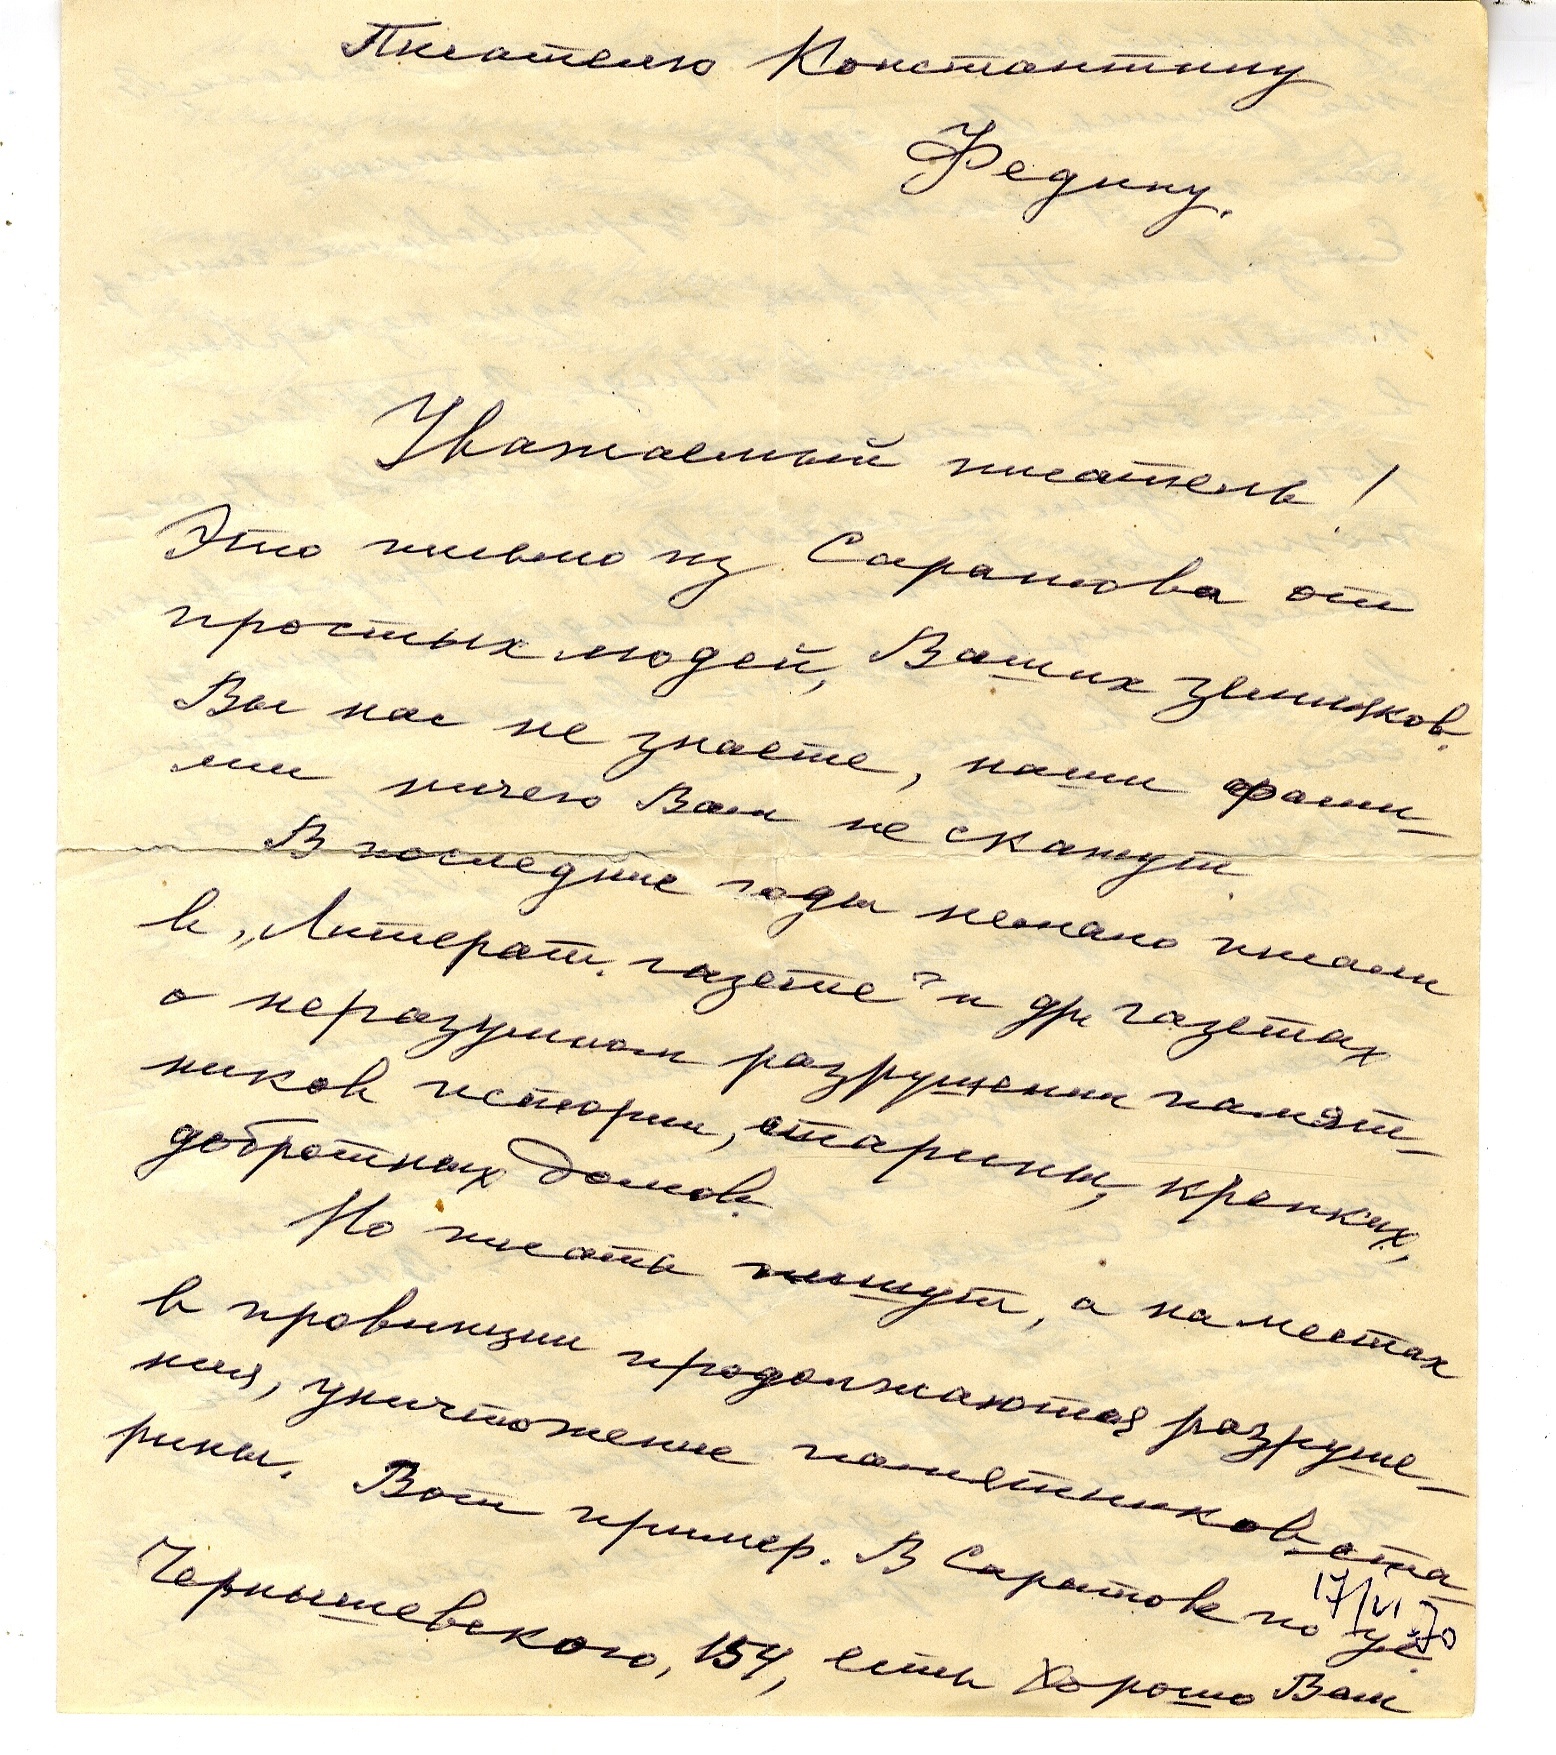 Писателю Константину
Федину.
Уважаемый писатель!
Это письмо из Саратова от
простых людей, Ваших земляков.
Вы нас не знаете, наши фами-
лии ничего Вам не скажут.
В последние годы немало писали
в „Литерат. газете" и др. газетах
о неразумном разрушении памят-
ников истории, старины, крепких,
добротных домов.
Но писать пишут, а на местах
в провинции продолжаются разруше-
ния, уничтожение памятников ста-
рины. Вот пример. В Саратове по ул.
17/VI 70
Чернышевского, 154, есть хорошо Вам